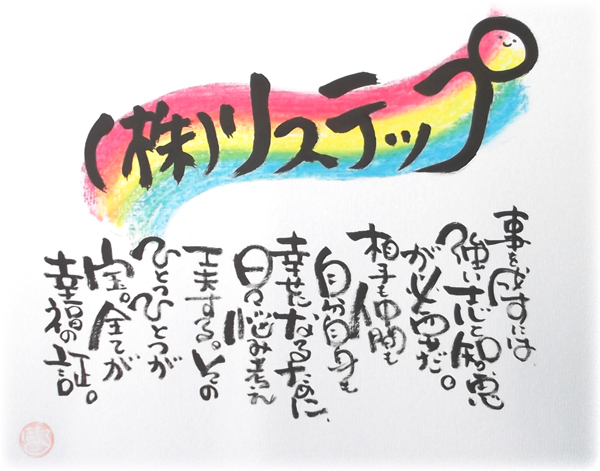 (株)リステップ
事を成すには
強い志と知恵
が必要だ。
相手も仲間も
自分自身も
幸せになるために、
日々悩み考え
工夫する。その
ひとつひとつが
宝。全てが
幸福の証。